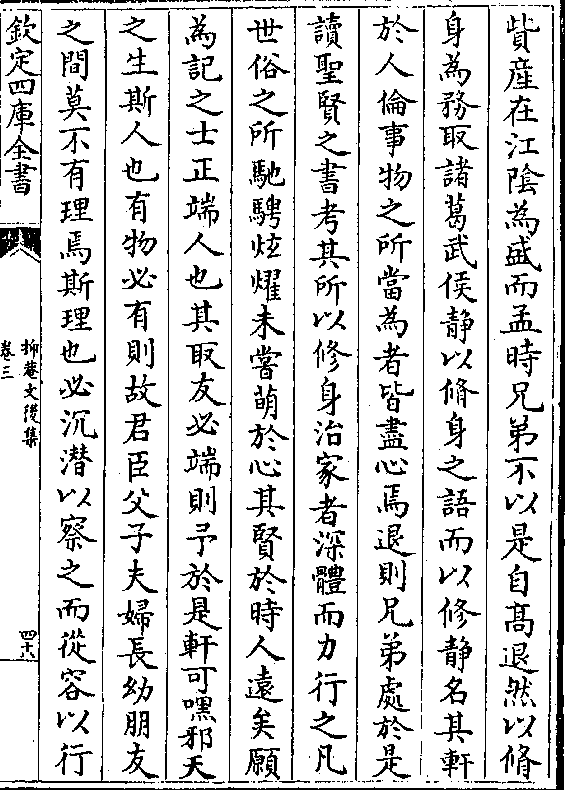 貲産在江隂為盛而孟時兄弟不以是自髙退然以脩
身為務取諸葛武侯静以脩身之語而以修静名其軒
於人倫事物之所當為者皆盡心焉退則兄弟處於是
讀聖賢之書考其所以修身治家者深體而力行之凡
世俗之所馳騁炫燿未嘗萌於心其賢於時人遠矣願
為記之士正端人也其取友必端則予於是軒可嘿邪天
之生斯人也有物必有則故君臣父子夫婦長幼朋友
之間莫不有理焉斯理也必沉潜以察之而從容以行
欽定四庫全書
抑菴文後集
卷三
四十八